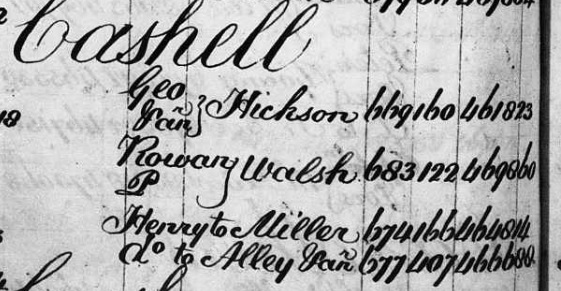 Cashell
Geo
Jas } Hickson 669 160 461823
18
Rowan } Walsh 683 122 469860
P
Henry to Miller 674 166 464814
do to Alley Jas 677 407 466680